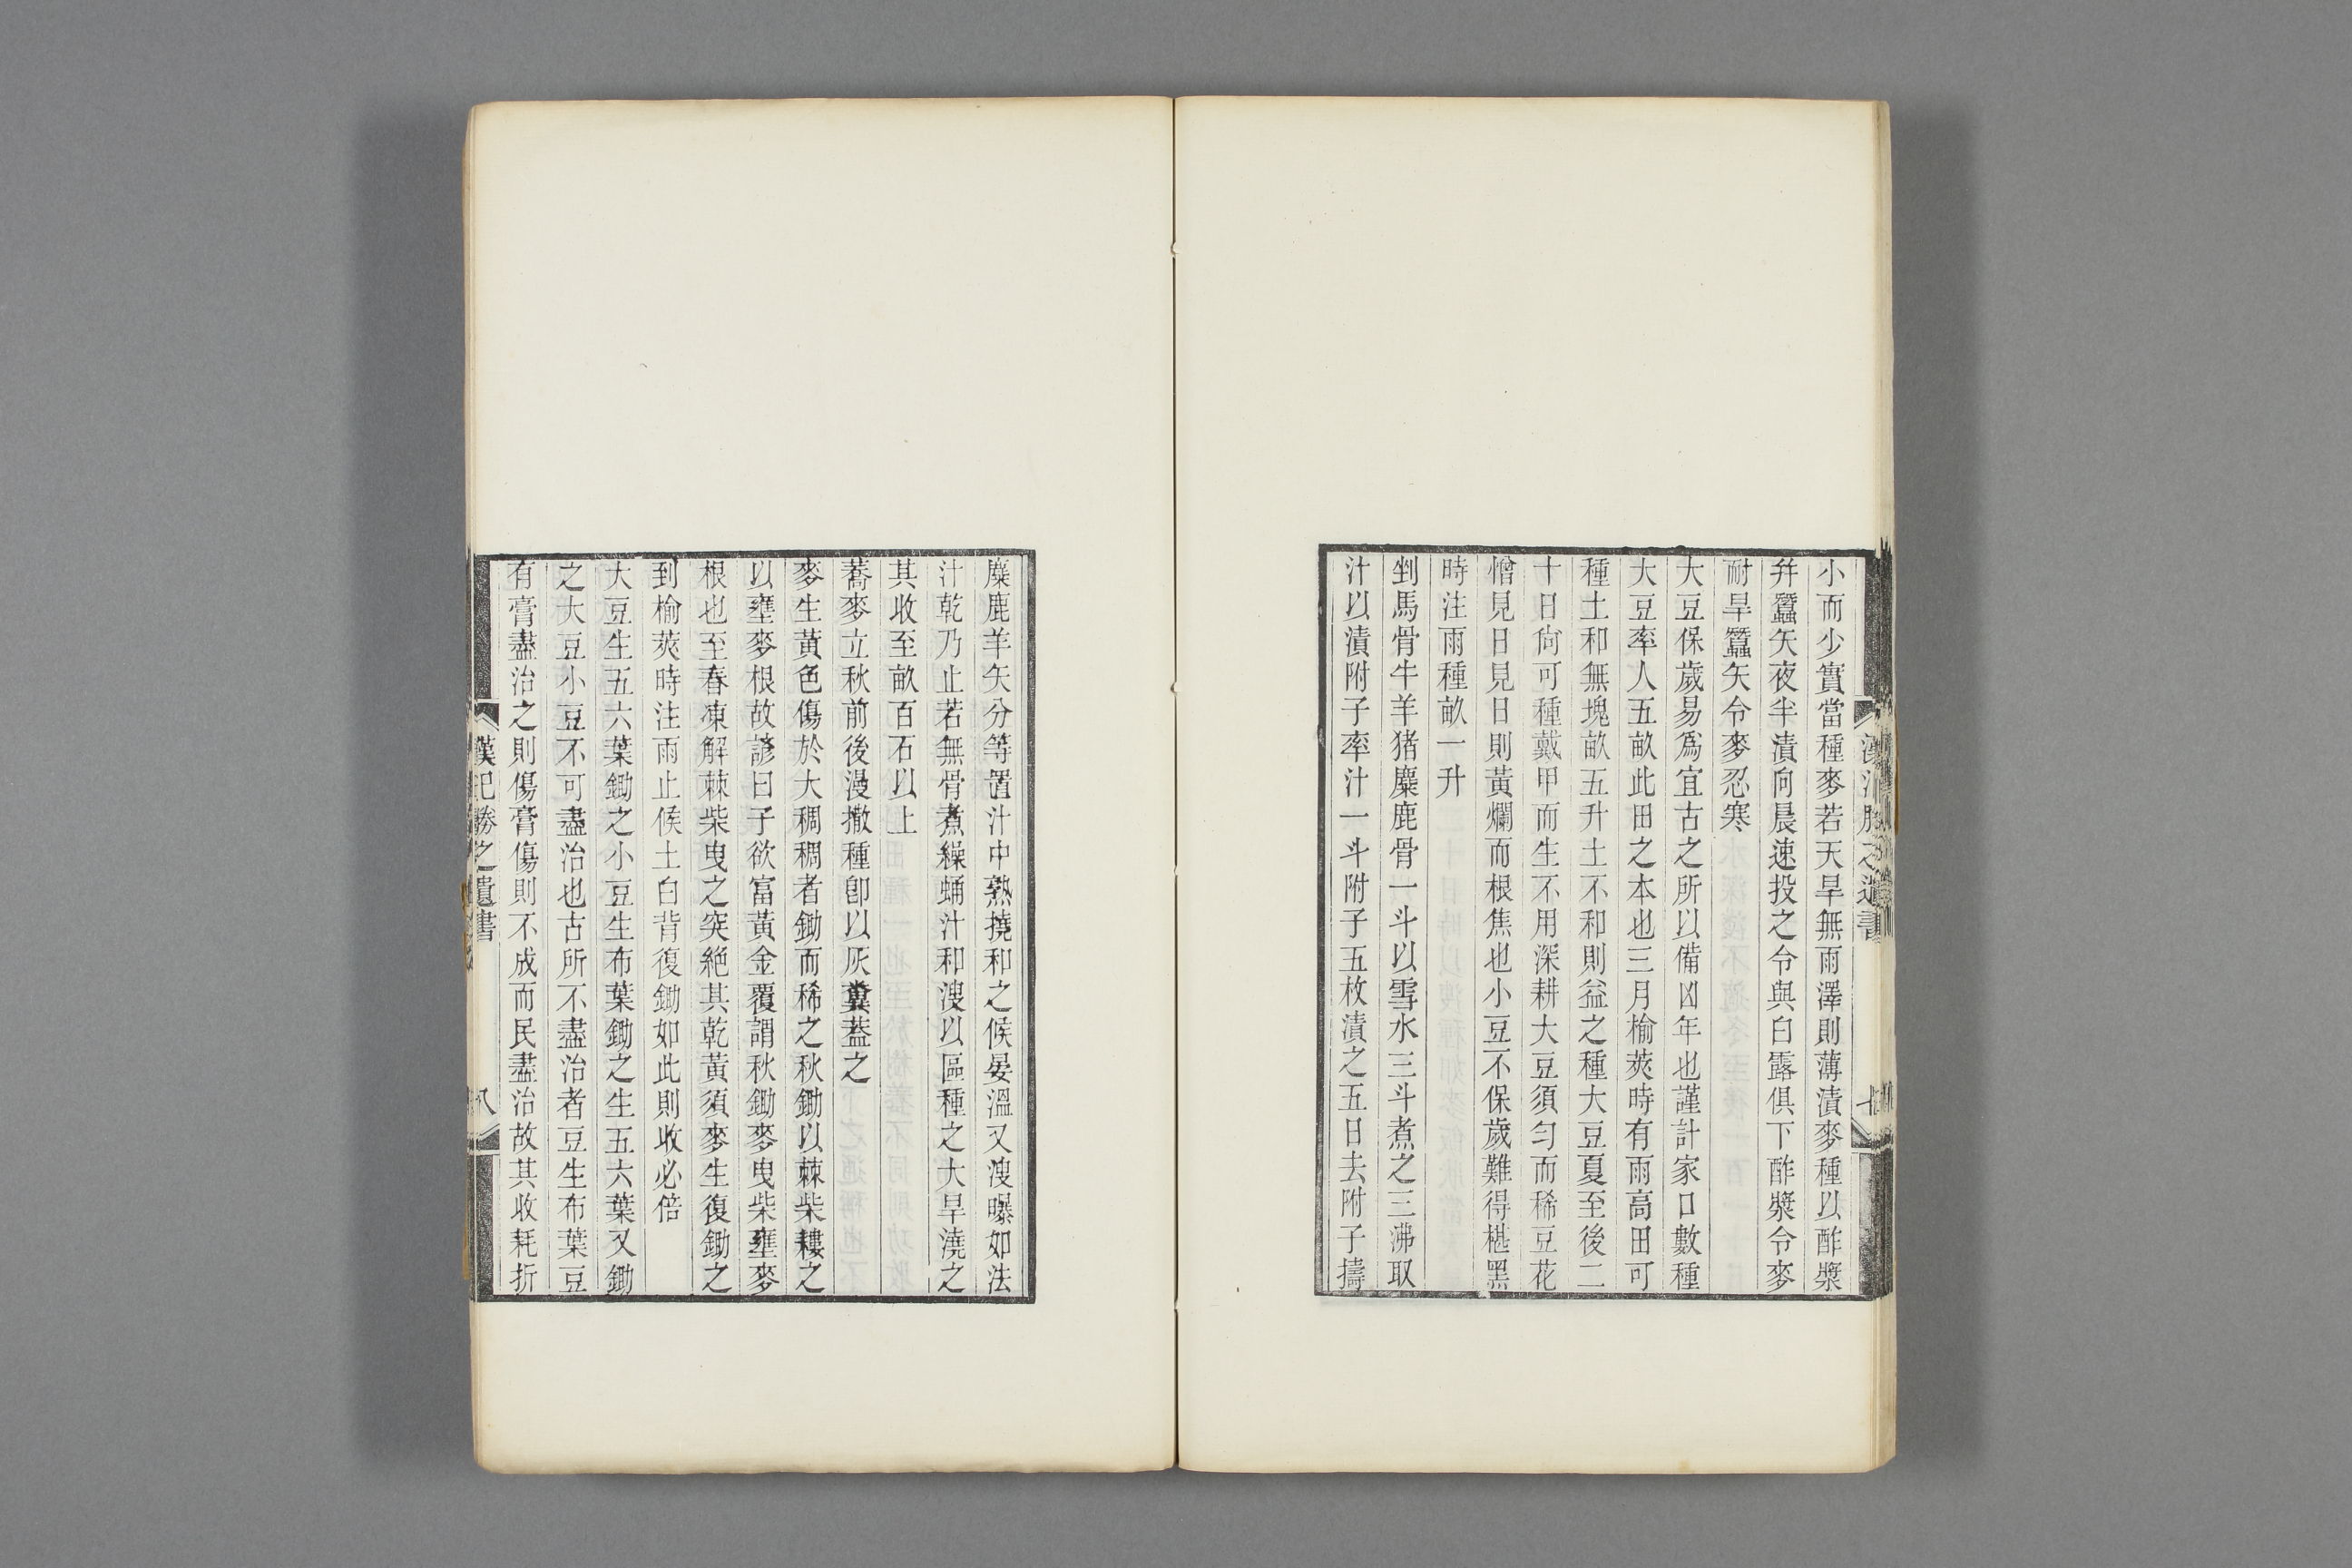 小而少實當種麥若天旱無雨澤則薄漬麥種以酢漿
幷蠶矢夜半漬向晨速投之令與白露俱下酢漿令麥
耐旱蠶矢令麥忍寒
大豆保歲易爲宜古之所以備凶年也謹計家口數種
大豆率人五畝此田之本也三月榆莢時有雨高田可
種土和無塊畝五升土不和則益之種大豆夏至後二
十日尙可種戴甲而生不用深耕大豆須勻而稀豆花
憎見日見日則黃爛而根焦也小豆不保歲難得椹黑
時注雨種畝一升
剉馬骨牛羊猪麋鹿骨一斗以雪水三斗煮之三沸取
汁以漬附子率汁一斗附子五枚漬之五日去附子擣
麋鹿羊矢分等置汁中熟撓和之候晏溫又溲曝如法
汁乾乃止若無骨煮繰蛹汁和溲以區種之大旱澆之
其收至畝百石以上
蕎麥立秋前後漫撒種卽以灰糞葢之
麥生黃色傷於大稠稠者鋤而稀之秋鋤以棘柴耬之
以壅麥根故諺曰子欲富黃金覆謂秋鋤麥曳柴壅麥
根也至春凍解棘柴曳之突絕其乾黃須麥生復鋤之
到榆莢時注雨止候土白背復鋤如此則收必倍
大豆生五六葉鋤之小豆生布葉鋤之生五六葉又鋤
之大豆小豆不可盡治也古所不盡治者豆生布葉豆
有膏盡治之則傷膏傷則不成而民盡治故其收耗折
漢氾勝之遺書
八